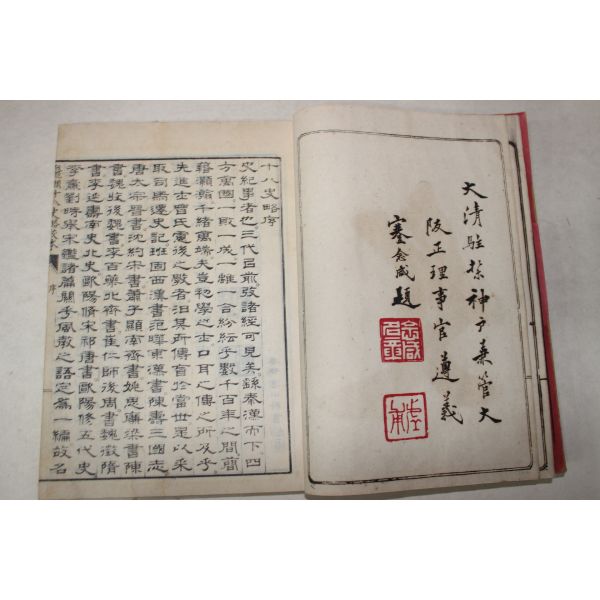 大清駐紮神戶兼管大
阪正理事官遵義
蹇念咸題
念咸
名章
十八史略序
史紀事者也三代已前攷諸經可見矣繇秦漢而下四
方萬國一敗一成一離一合紛紜乎數千百年之間簡
籍瀚千緒萬端夫豈初學之士口耳之傳之所及乎
先進士曾氏憲後之斆者汨其所傳首於當世是以采
取司馬遷史記班固西漢書范曄東漢書陳壽三國志
唐太宗晉書沈約宋書蕭子顯南齊書姚思廉梁書陳
書魏收後魏書李百藥北齊書崔仁師後周書魏徵隋
書李延壽南史北史歐陽修宋祁唐書歐陽修五代史
李燾劉時舉宋鑑諸篇關乎風敎之語定爲一編故名
序